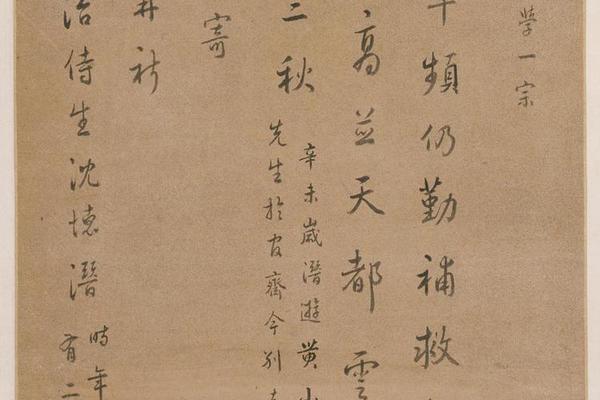 學一宗
頻仍勤補救
高並天都雲
二秋
辛未歲潛遊黃山
先生於官齋今別
寄
治侍生沈德潛
時年
有二